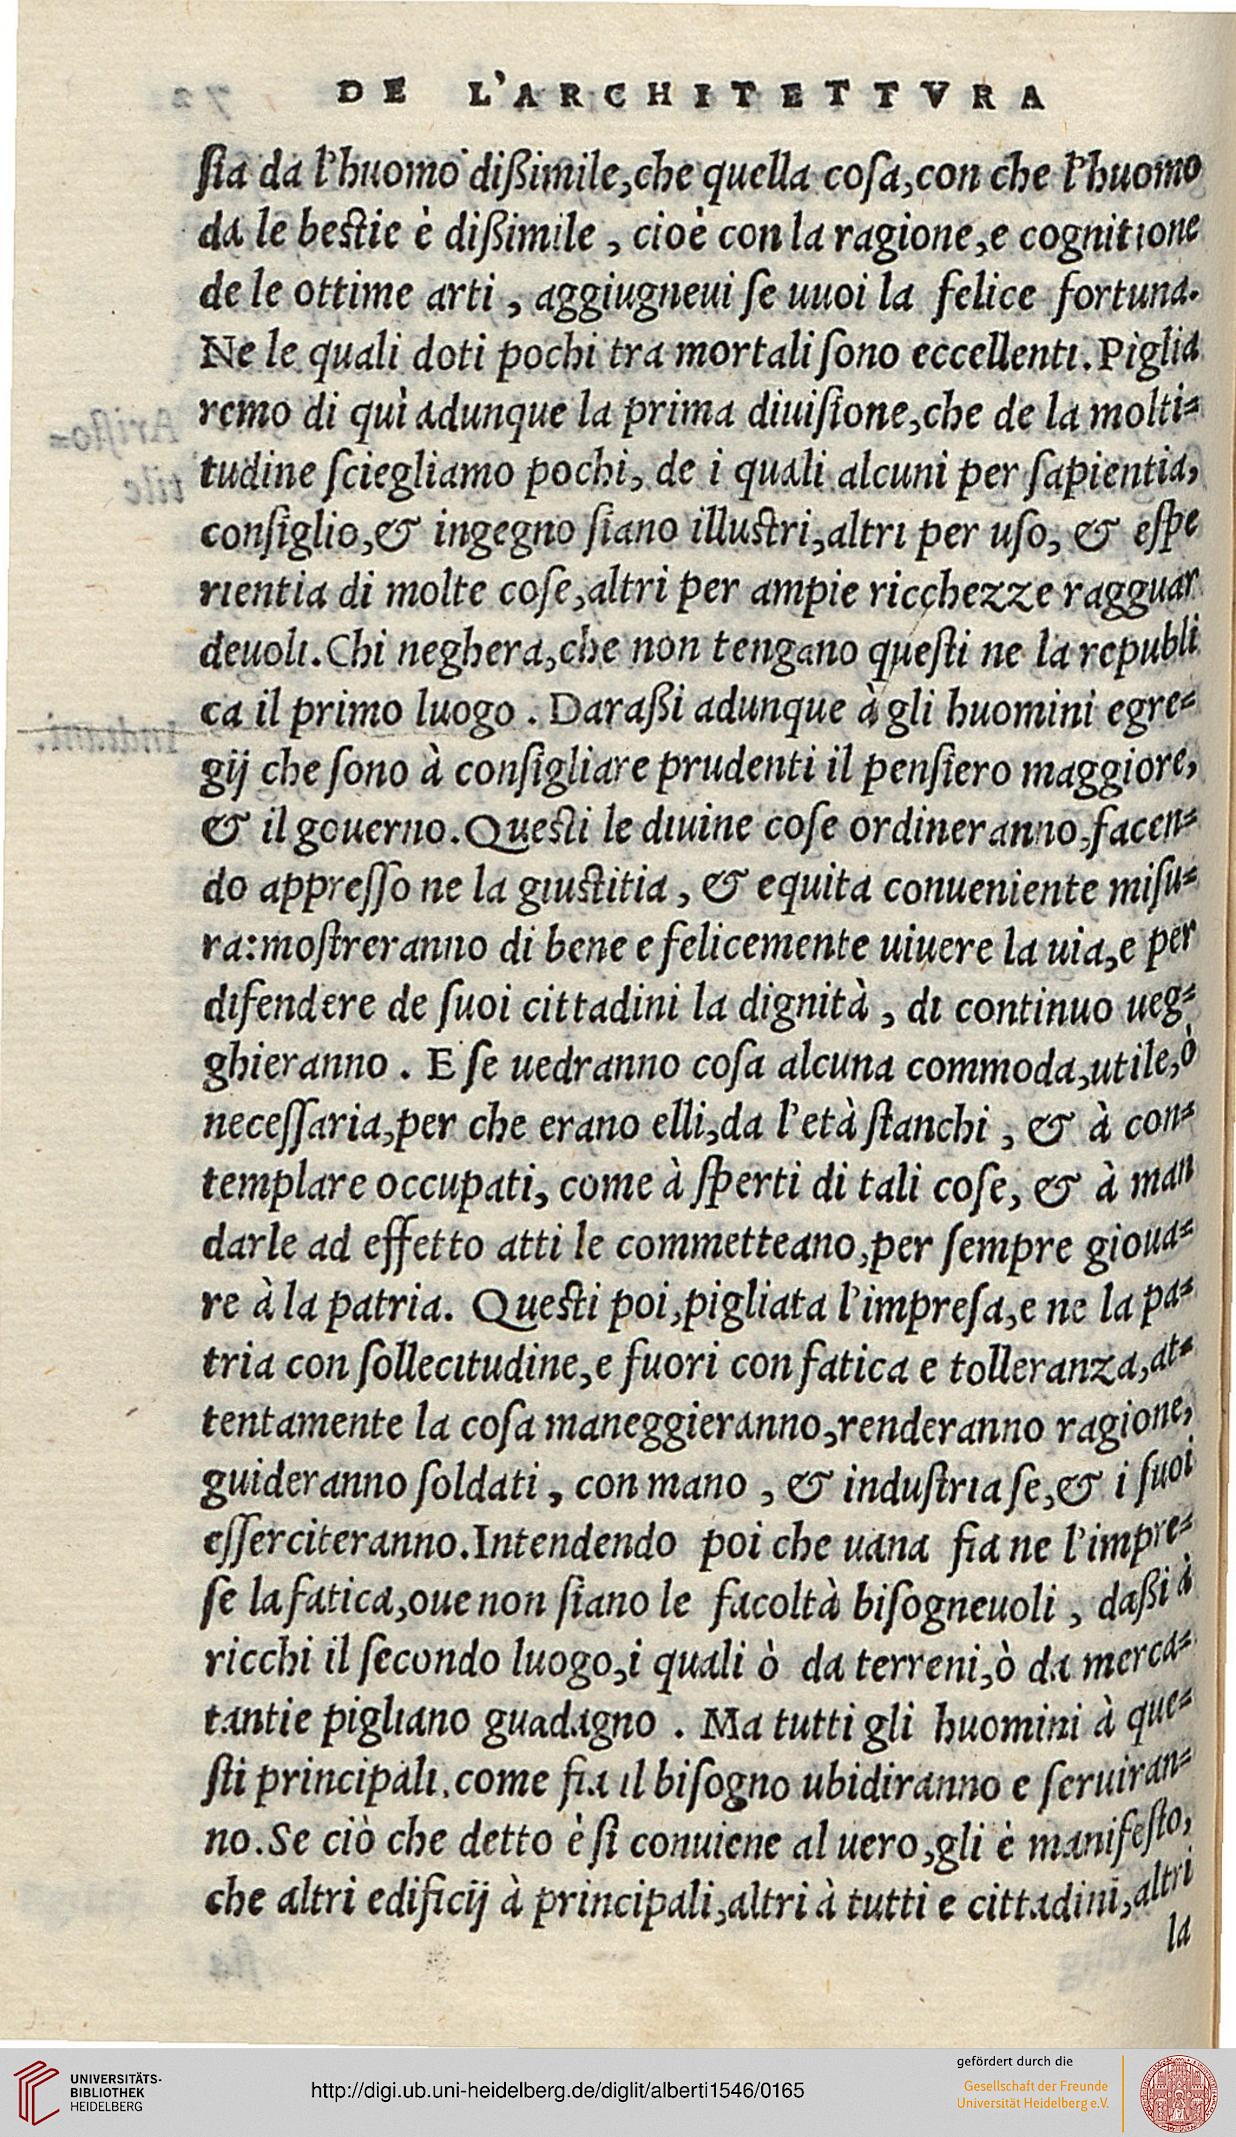 DE L'ARCHITETTVRA
ſia da l'huomo dißimile,che quella coſa,con che l'huomo
da le beſtie è dißimile , cioè con la ragione,e cognitione
de le ottime arti , aggiugneui ſe uuoi la felice fortuna.
Ne le quali doti pochi tra mortali ſono eccellenti.Piglia
remo di quì adunque la prima diuiſione,che de la molti=
tudine ſciegliamo pochi, de i quali alcuni per ſapientia,
conſiglio,& ingegno ſiano illuſtri,altri per uſo, & eſpe
rientia di molte coſe,altri per ampie ricchezze ragguar
deuoli.Chi neghera,che non tengano queſti ne la republi
ca il primo luogo . Daraßi adunque à gli huomini egre=
gij che ſono à conſigliare prudenti il penſiero maggiore,
& il gouerno.Queſti le diuine coſe ordineranno,facen=
do appreſſo ne la giuſtitia , & equita conueniente miſu=
ra:moſtreranno di bene e felicemente uiuere la uia,e per
difendere de ſuoi cittadini la dignità , di continuo ueg=
ghieranno . E ſe uedranno coſa alcuna commoda,utile,ò
neceſſaria,per che erano elli,da l'età ſtanchi , & à con=
templare occupati, come à ſperti di tali coſe, & à man
darle ad effetto atti le commetteano,per ſempre gioua=
re à la patria. Queſti poi,pigliata l'impreſa,e ne la pa=
tria con ſollecitudine,e fuori con fatica e tolleranza,at=
tentamente la coſa maneggieranno,renderanno ragione,
guideranno ſoldati , con mano , & induſtria ſe,& i ſuoi
eſſerciteranno.Intendendo poi che uana fia ne l'impre=
ſe la fatica,oue non ſiano le facoltà biſogneuoli , daßi à
ricchi il ſecondo luogo,i quali ò da terreni,ò da merca=
tantie pigliano guadagno . Ma tutti gli huomini à que=
ſti principali,come fia il biſogno ubidiranno e ſeruiran=
no.Se ciò che detto è ſi conuiene al uero,gli è manifeſto,
che altri edificij à principali,altri à tutti e cittadini,altri
la
UNIVERSITÄTS-
BIBLIOTHEK
HEIDELBERG
http://digi.ub.uni-heidelberg.de/diglit/alberti1546/0165
gefördert durch die
Gesellschaft der Freunde
Universität Heidelberg e.V.